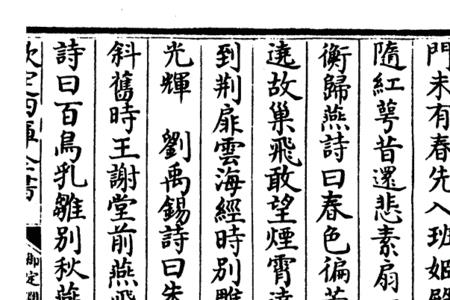 門未有春先入班姬殿
隨紅萼昔還悲素扇
衡歸燕詩曰春色徧
遶故巢飛敢望煙霄達
到荆扉雲海經時别雕
光輝　劉禹錫詩曰朱
斜舊時王謝堂前燕飛
詩曰百鳥乳雛别秋燕
欽定四庫全書
御定